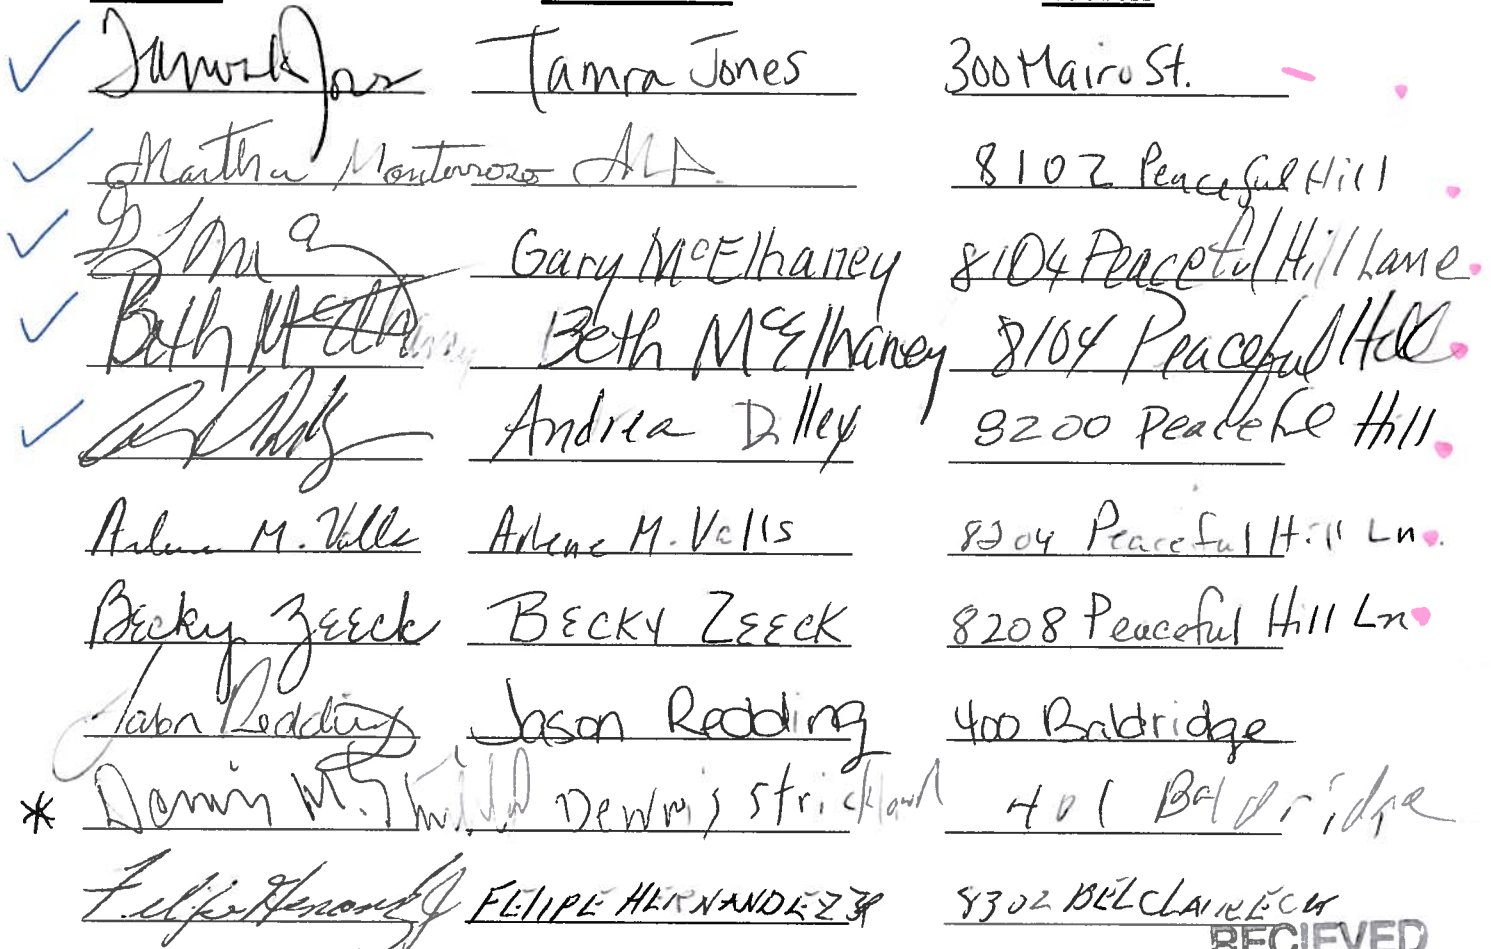 Tamra Jones 300 Main St.
Martha Monterroso 8102 Peaceful Hill
Gary McElhaney 8104 Peaceful Hill Lane
Beth McElhaney Beth McElhaney 8104 Peaceful Hill
Andrea Dilley 8200 Peaceful Hill
Arlene M. Valls Arlene M. Valls 8204 Peaceful Hill Ln
Becky Zeeck BECKY ZEECK 8208 Peaceful Hill Ln
Jason Redding Jason Redding 400 Baldridge
* Dennis M. Strickland Dennis Strickland 401 Baldridge
Felipe Hernandez Jr FELIPE HERNANDEZ JR 8302
RECIEVED